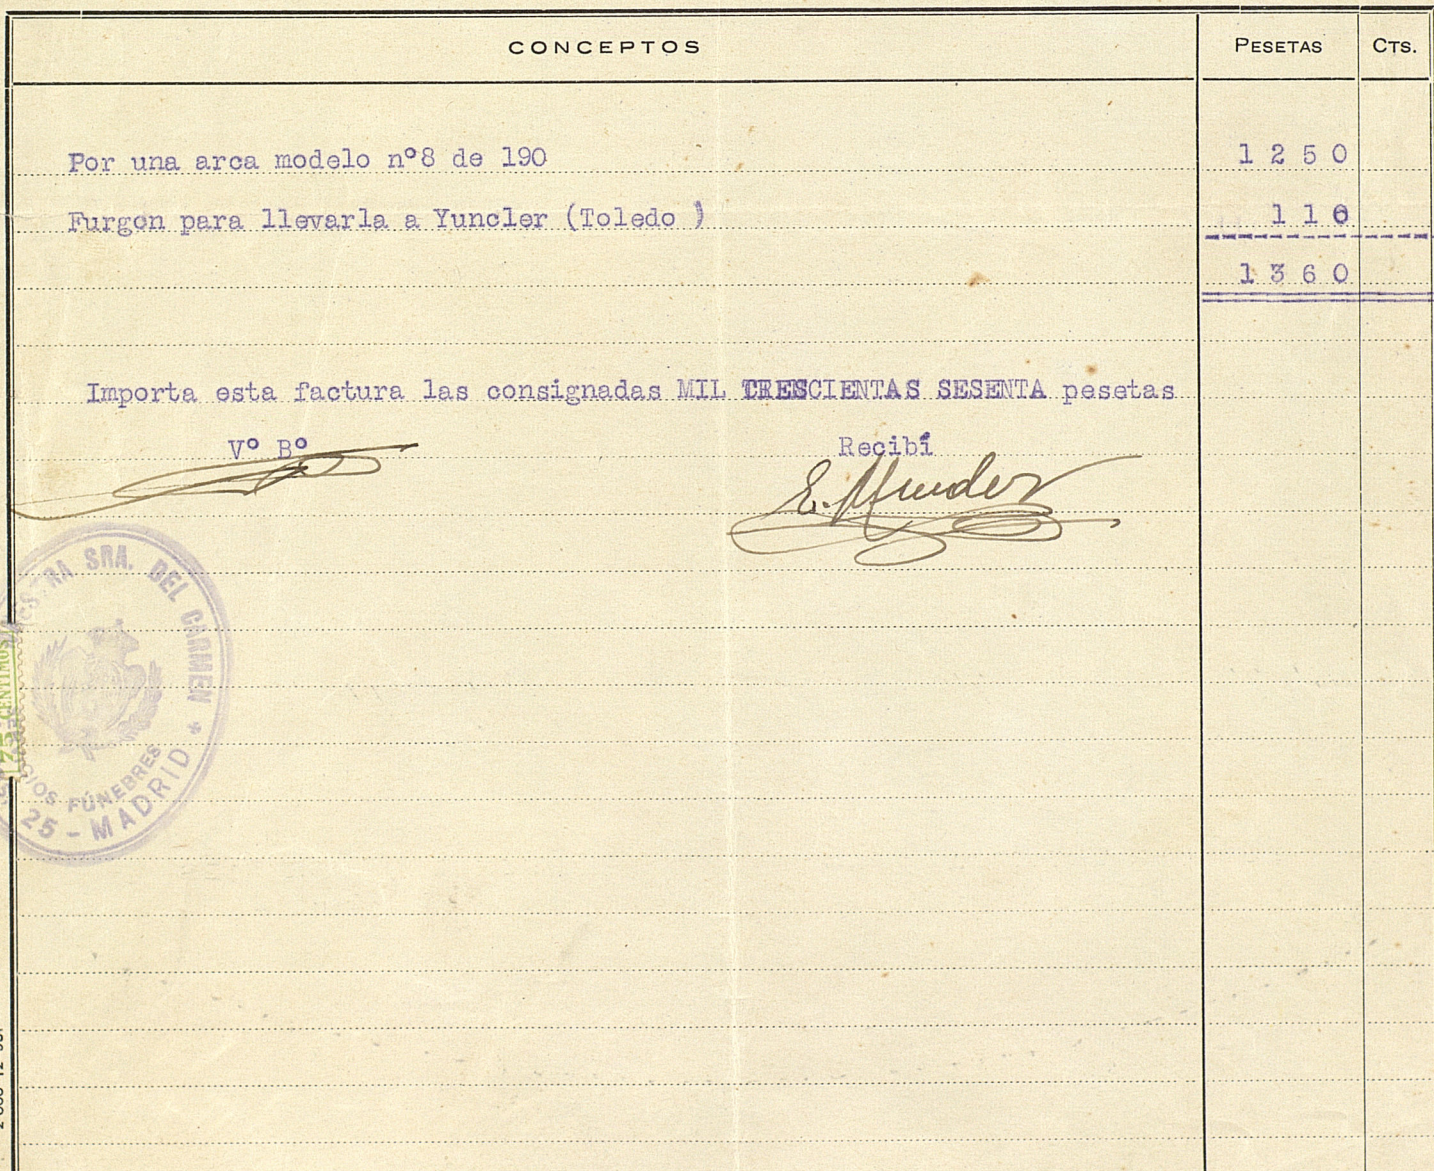 CONCEPTOS PESETAS CTS.
Por una arca modelo nº8 de 190 1250
Furgon para llevarla a Yuncler (Toledo ) 110
1360
Importa esta factura las consignadas MIL TRESCIENTAS SESENTA pesetas
Vº Bº Recibí
E. Mendez
SRA. DEL CARMEN
FÚNEBRES
25 - MADRID
25 CENTIMOS